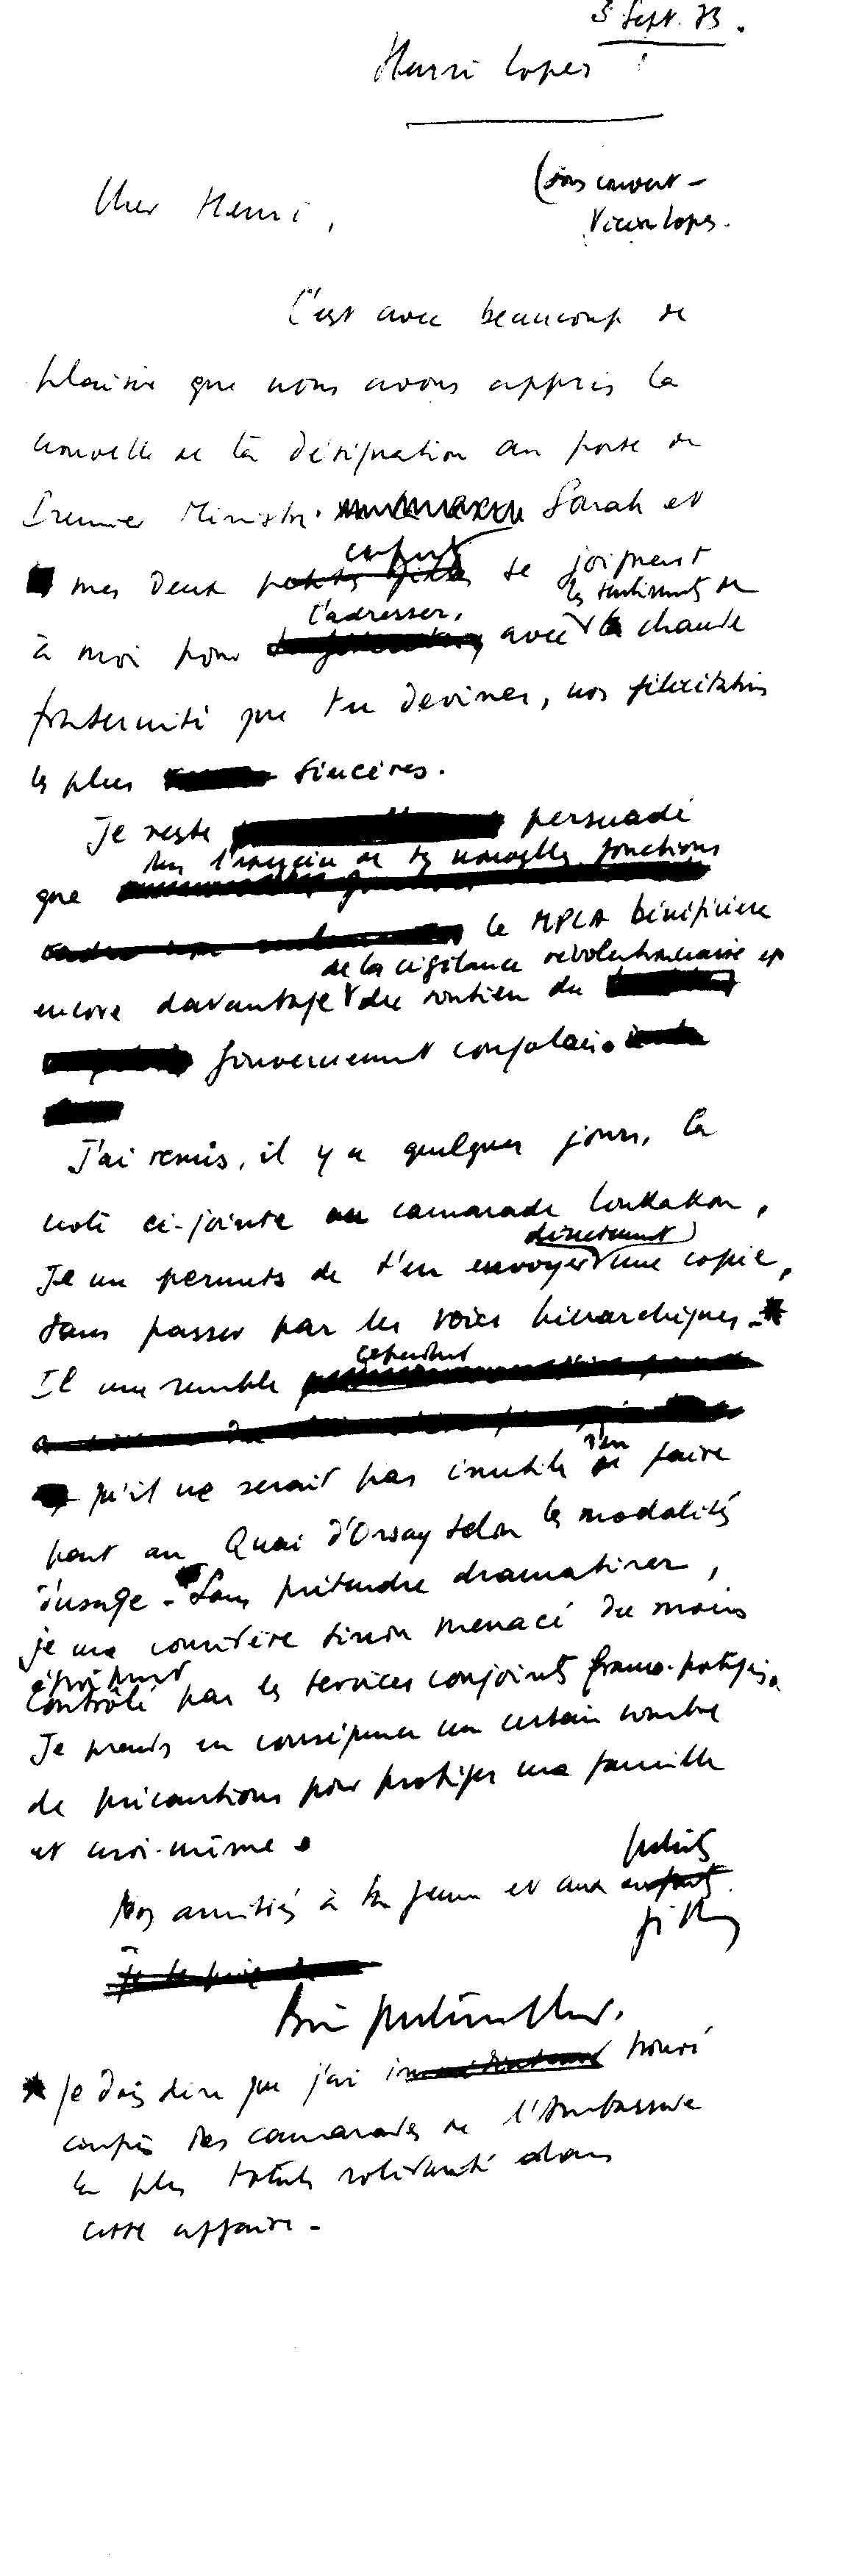 3 Sept. 73.
Henri Lopes
Cher Henri,
(sous couvert -
Victor Lopes.
C'est avec beaucoup de
plaisir que nous avons appris la
nouvelle de ta désignation au poste de
Premier Ministre. Sarah et
enfants
mes deux petites filles se joignent
les sentiments de
t'adresser,
à moi pour avec la chaude
fraternité que tu devines, nos félicitations
les plus sincères.
Je reste persuadé
que
dans l'exercice de tes nouvelles fonctions
le MPLA bénéficiera
de la vigilance révolutionnaire et
encore davantage du soutien du
Gouvernement congolais.
J'ai remis, il y a quelques jours, la
note ci-jointe au camarade Loukakou,
directement
Je me permets de t'en envoyer une copie,
sans passer par les voies hiérarchiques. *
cependant
Il me semble
qu'il ne serait pas inutile d'en faire
part au Quai d'Orsay selon les modalités
d'usage - Sans prétendre dramatiser,
je me considère sinon menacé du moins
étroitement
contrôlé par les services conjoints franco-portugais.
Je prends en conséquence un certain nombre
de précautions pour protéger ma famille
et moi-même.
petits
Nos amitiés à ta femme et aux enfants.
filles
Bien fraternellement.
* Je dois dire que j'ai trouvé
auprès des camarades de l'Ambassade
la plus totale solidarité dans
cette affaire -